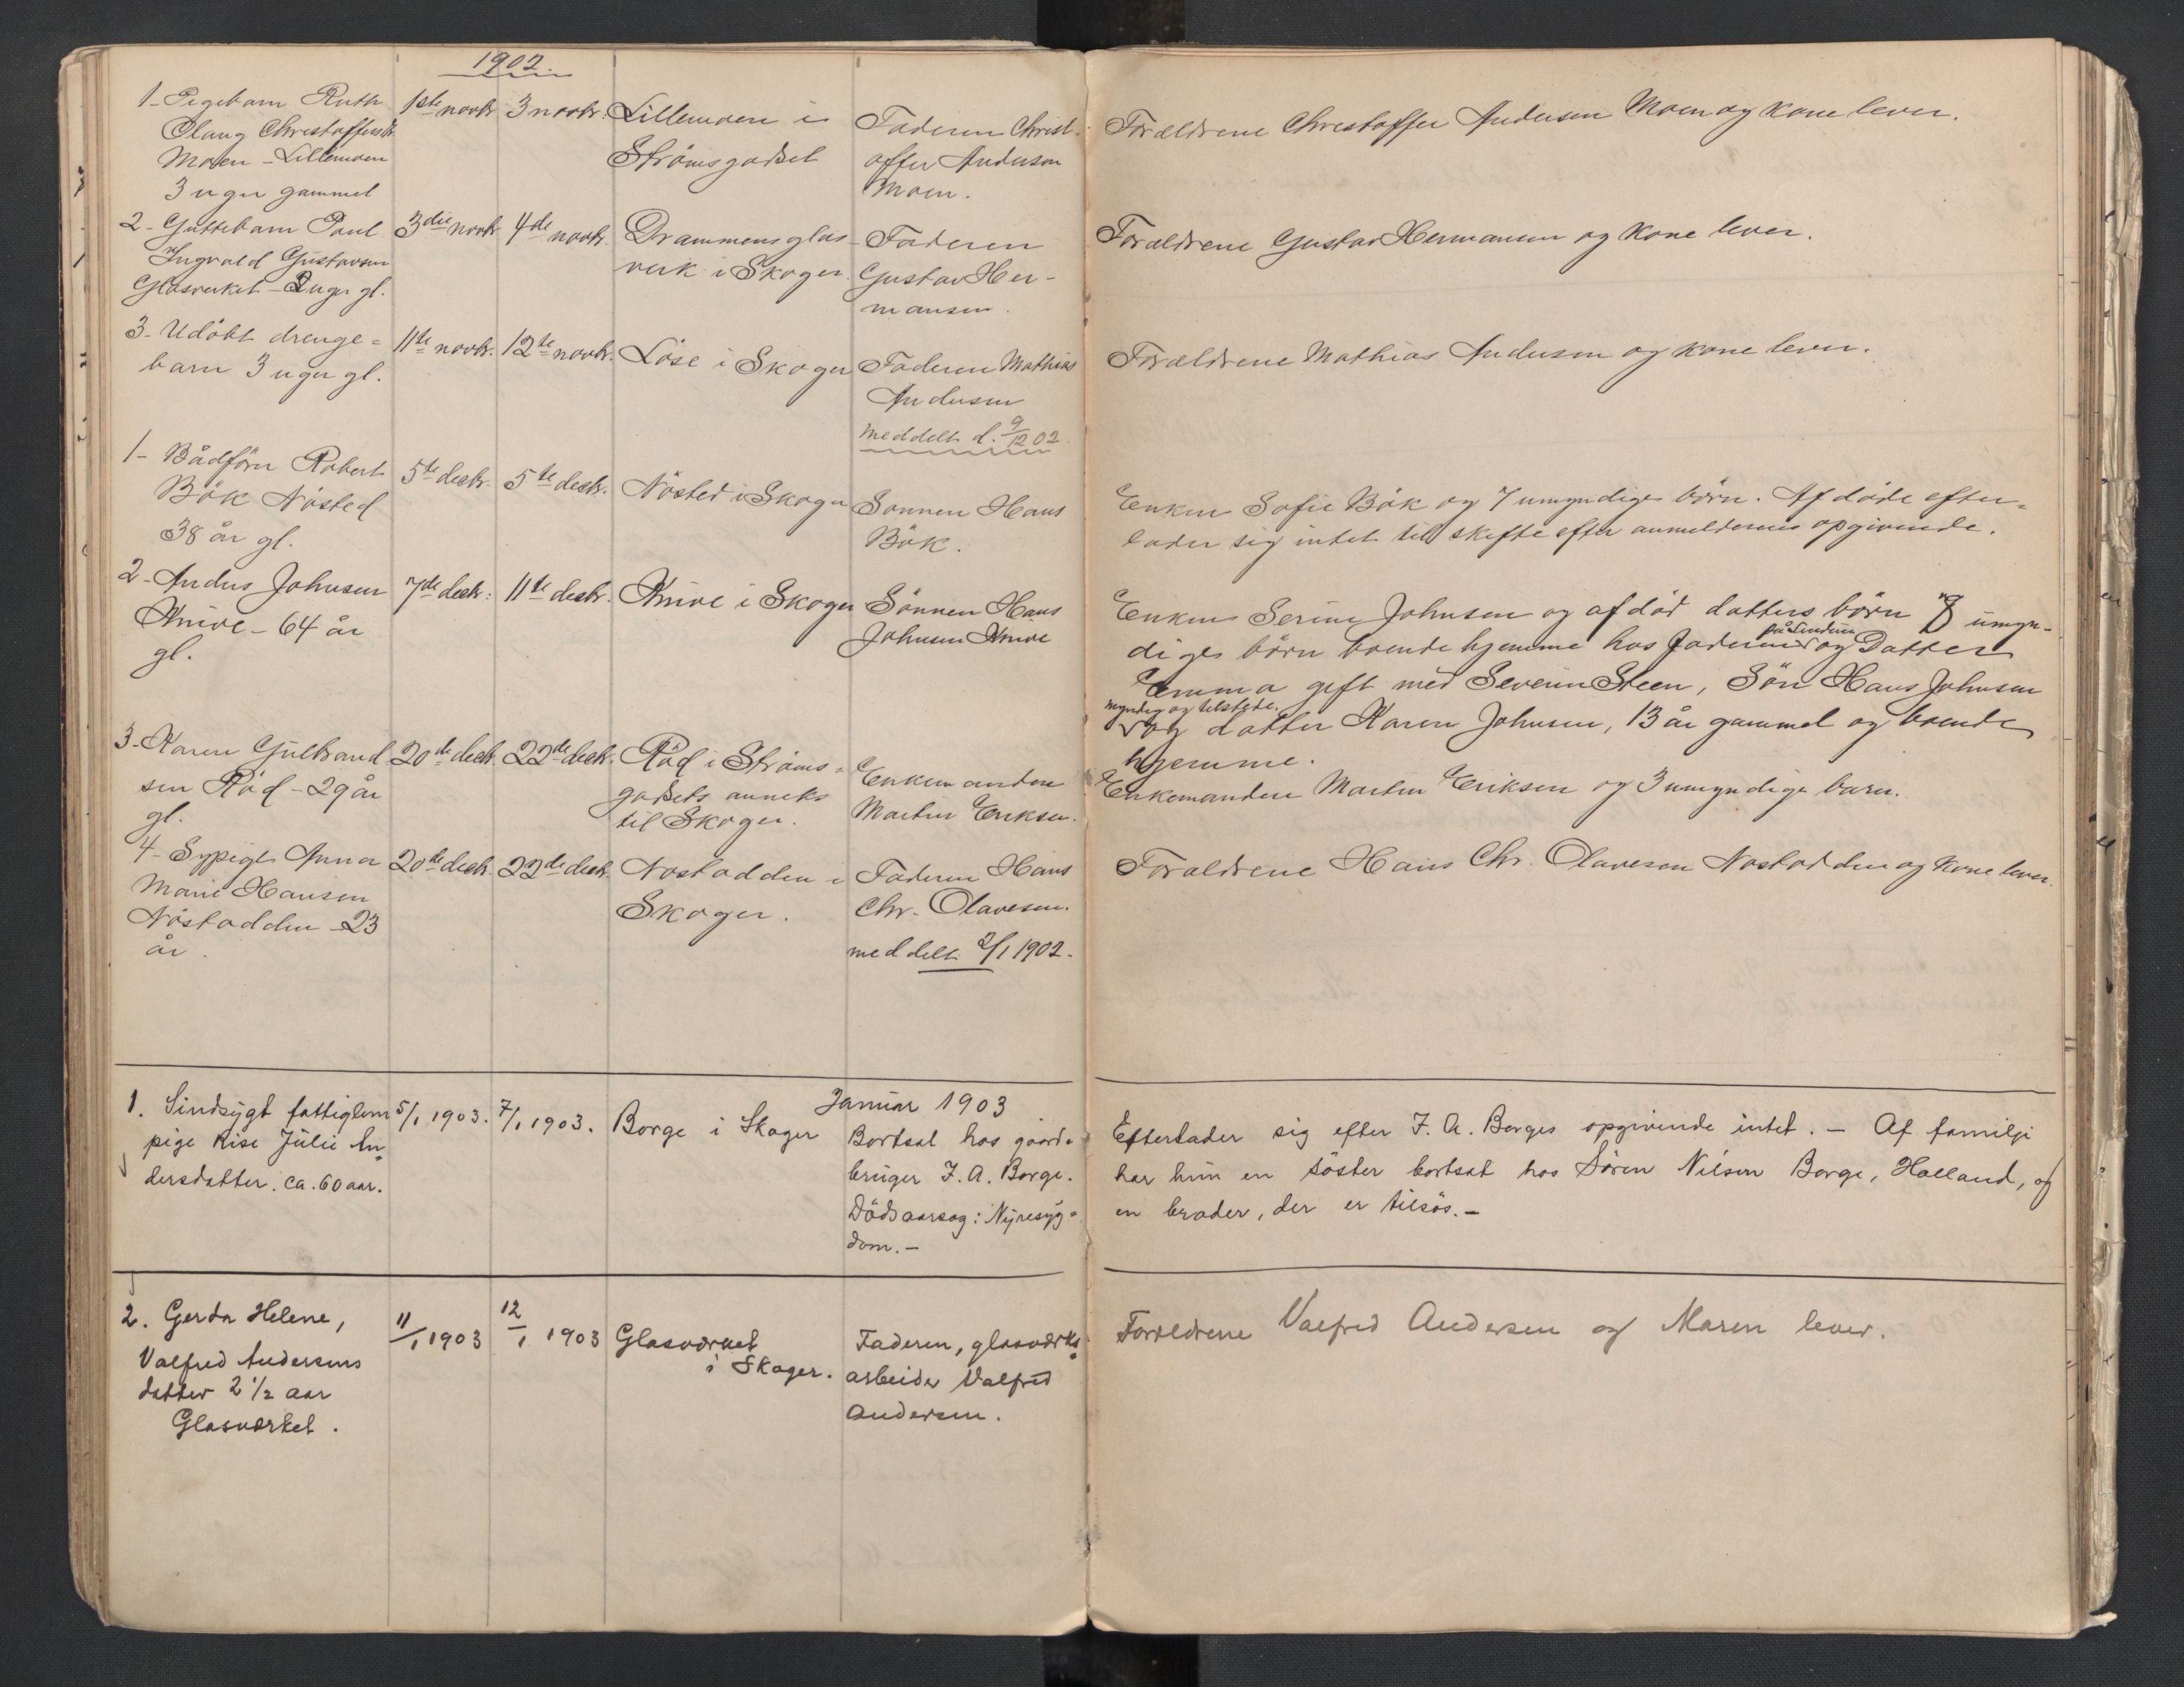 1902.
1- Pigebarn Ruth
Olaug Christoffersdtr
Moen - Lillemoen
3 uger gammel
1ste novbr. 3 novbr.
Lillemoen i
Strømsgodset
Faderen Christ-
offer Andersen
Moen.
Forældrene Christoffer Andersen Moen og kone lever.
2- Guttebarn Paul
Ingvald Gustavsen
Glasverket - 2 uger gl.
3die novbr. 4de novbr.
Drammens glas-
verk i Skoger.
Faderen
Gustav Her-
mansen.
Forældrene Gustav Hermansen og kone lever.
3- Udöbt drenge=
barn 3 uger gl.
11te novbr. 12te novbr.
Löse i Skoger
Faderen Mathias
Andersen
meddelt d. 9/12 02
Forældrene Mathias Andersen og kone lever.
1- Bådförer Robert
Bök Nösted
38 år gl.
5te decbr. 5te decbr.
Nösted i Skoger
Sønnen Hans
Bök.
Enken Sofie Bök og 7 umyndige börn. Afdöde efter=
lader sig intet til skifte efter anmelderens opgivende.
2- Anders Johnsen
Knive - 64 år
gl.
7de decbr. 11te decbr.
Knive i Skoger
Sönnen Hans
Johnsen Knive
Enken Serine Johnsen og afdöd datters börn 8 umyn-
dige börn boende hjemme hos faderen på Lindum og Datter
Emma gift med Severin Steen, Sön Hans Johnsen
myndig og tilstede.
og datter Karen Johnsen, 13 år gammel og boende
hjemme.
3- Karen Gulbrand
sen Röd - 29 år
gl.
20de decbr. 22de decbr.
Röd i Ströms=
godsets anneks
til Skoger.
Enkemanden
Martin Eriksen.
Enkemanden Martin Eriksen og 3 umyndige barn.
4- Sypige Anna
Marie Hansen
Nöstodden - 23
år.
20de decbr. 22de decbr.
Nøstodden i
Skoger.
Faderen Hans
Chr. Olavesen.
meddelt 2/1 1902.
Forældrene Hans Chr. Olavesen Nøstodden og kone lever.
Januar 1903
1. Sindsygt fattiglem
pige Kise Julie An=
dersdatter. ca. 60 aar.
5/1 1903. 7/1 1903.
Borge i Skoger
Bortsat hos gaard=
bruger J. A. Borge.
Dödsaarsag: Nyresyg=
dom.-
Efterlader sig efter J. A. Borges opgivende intet. - Af familje
har hun en söster bortsat hos Sören Nilsen Borge, Holland, og
en broder, der er tilsös.-
2. Gerda Helene,
Valfred Andersens
datter 2 1/2 aar
Glasværket.
11/1 1903 12/1 1903
Glasværket
i Skoger.
Faderen, glasværks
arbeider Valfred
Andersen.
Forældrene Valfred Andersen og Maren lever.